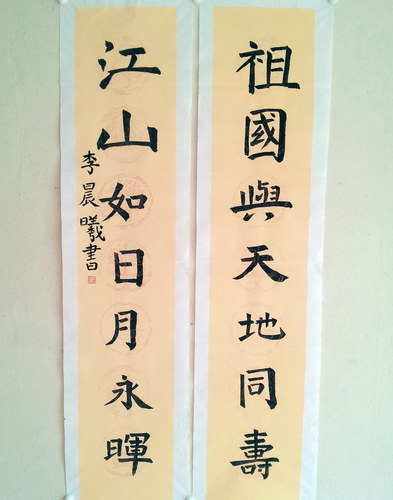 祖國與天地同壽
江山如日月永暉
李晨曦書